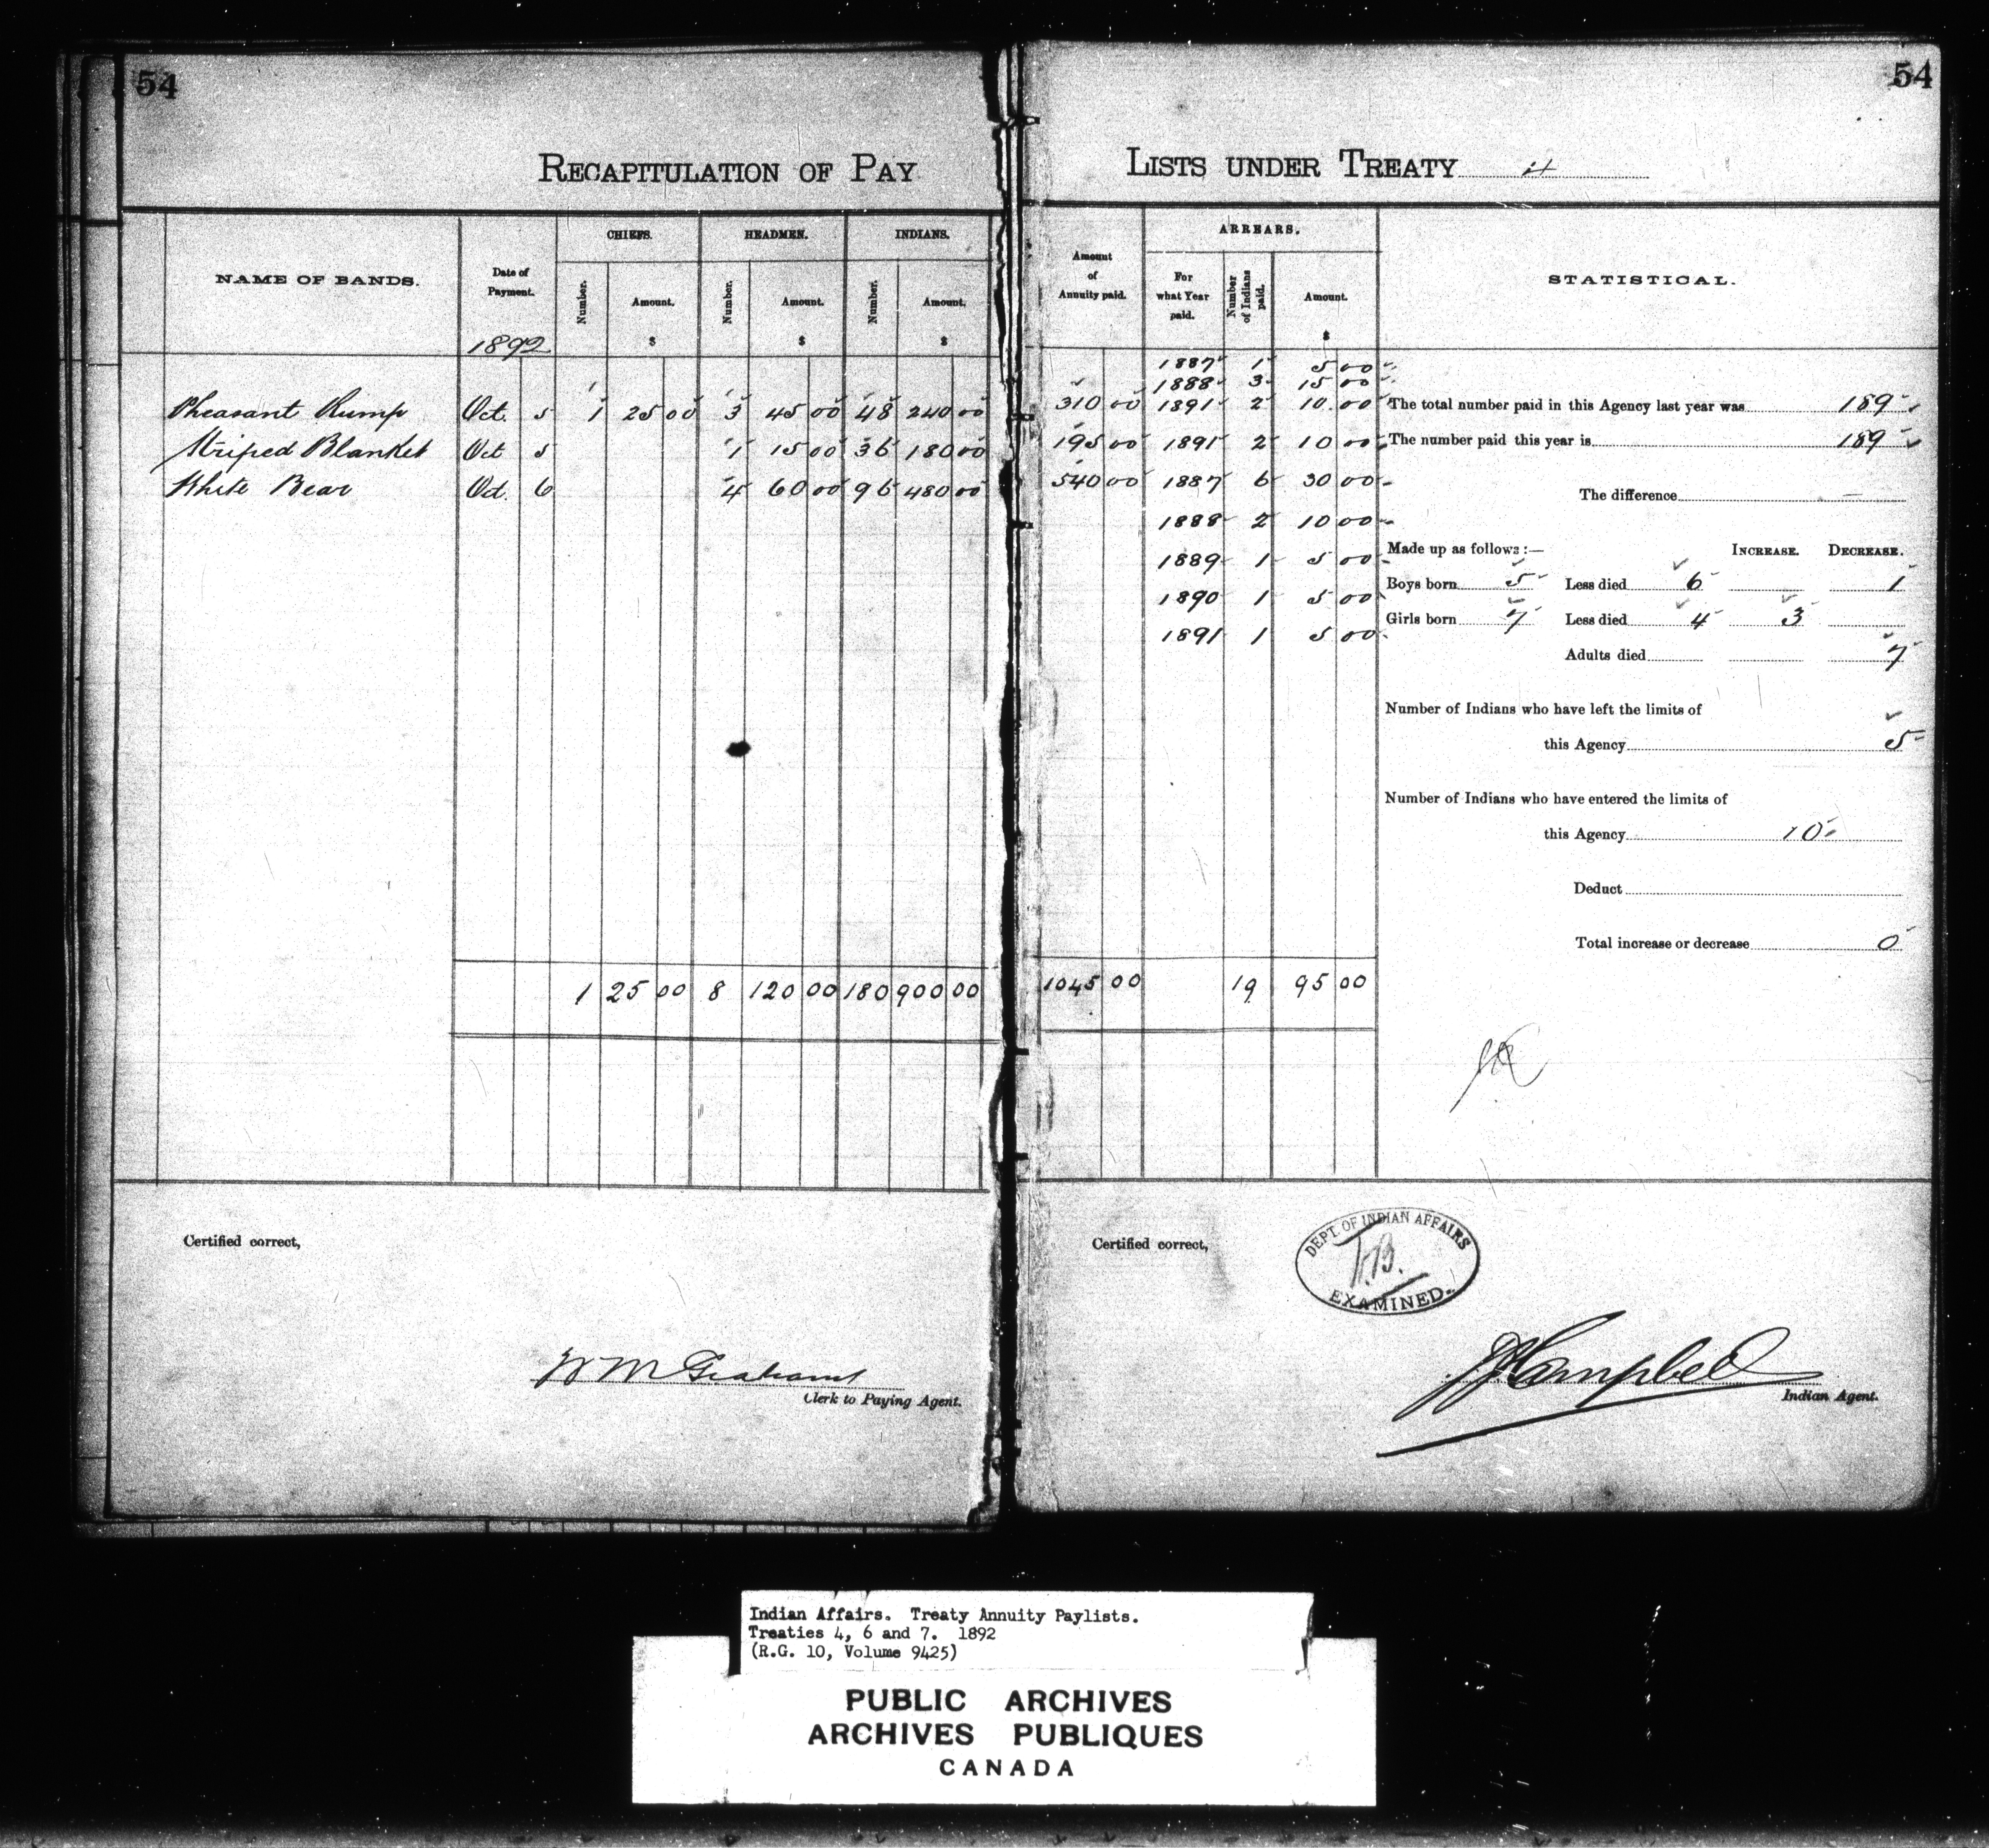 54
54
RECAPITULATION OF PAY LISTS UNDER TREATY 4
NAME OF BANDS. Date of Payment. CHIEFS. HEADMEN. INDIANS. Amount of Annuity paid. ARREARS. STATISTICAL.
Number. Amount. Number. Amount. Number. Amount. For what Year paid. Number of Indians paid. Amount.
1892 $ $ $ $
1887 1 5 00
1888 3 15 00
Pheasant Rump Oct. 5 1 25 00 3 45 00 48 240 00 310 00 1891 2 10 00 The total number paid in this Agency last year was 189
Striped Blanket Oct 5 1 15 00 36 180 00 195 00 1891 2 10 00 The number paid this year is 189
White Bear Oct. 6 4 60 00 96 480 00 540 00 1887 6 30 00 The difference —
1888 2 10 00
1889 1 5 00 Made up as follows :— INCREASE. DECREASE.
Boys born 5 Less died 6 1
1890 1 5 00
Girls born 7 Less died 4 3
1891 1 5 00
Adults died 7
Number of Indians who have left the limits of
this Agency 5
Number of Indians who have entered the limits of
this Agency 10
Deduct
Total increase or decrease 0
1 25 00 8 120 00 180 900 00 1045 00 19 95 00
Certified correct,
W M Graham
Clerk to Paying Agent.
Certified correct,
DEPT. OF INDIAN AFFAIRS
EXAMINED
JJ Campbell
Indian Agent.
Indian Affairs. Treaty Annuity Paylists.
Treaties 4, 6 and 7. 1892
(R.G. 10, Volume 9425)
PUBLIC ARCHIVES
ARCHIVES PUBLIQUES
CANADA